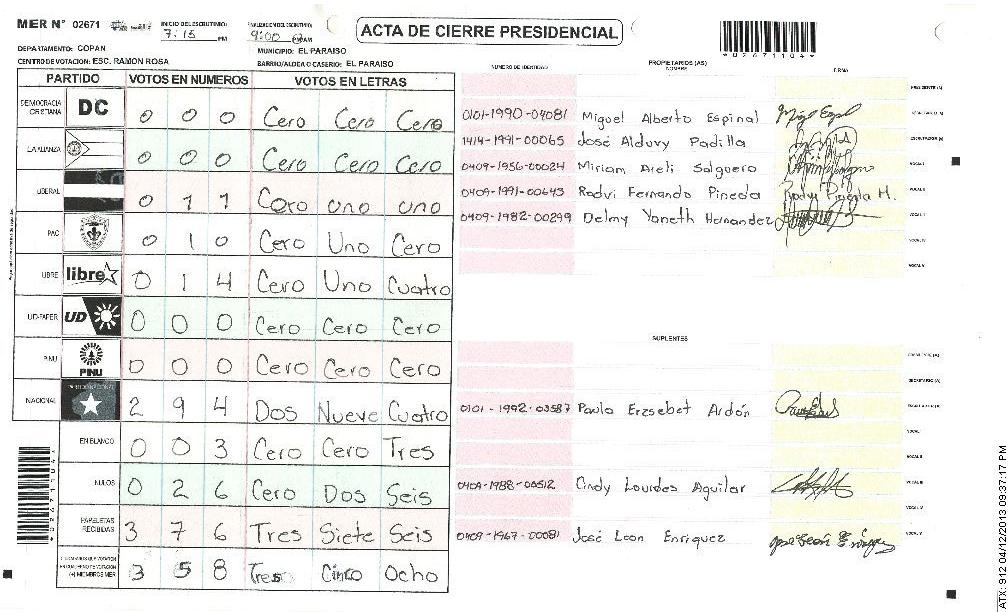 MER N° 02671
INICIO DEL ESCRUTINIO
7:15 PM
FINALIZACION DEL ESCRUTINIO
9:00 PM/AM
ACTA DE CIERRE PRESIDENCIAL
*02671104*
DEPARTAMENTO: COPAN
MUNICIPIO: EL PARAISO
CENTRO DE VOTACION: ESC. RAMON ROSA
BARRIO/ALDEA O CASERIO: EL PARAISO
PARTIDO VOTOS EN NUMEROS VOTOS EN LETRAS
DEMOCRACIA CRISTIANA DC 0 0 0 Cero Cero Cero
LA ALIANZA 0 0 0 Cero Cero Cero
LIBERAL 0 1 1 Cero uno uno
PAC 0 1 0 Cero Uno Cero
LIBRE libre 0 1 4 Cero Uno Cuatro
UD-FAPER UD 0 0 0 Cero Cero Cero
PINU PINU 0 0 0 Cero Cero Cero
NACIONAL PARTIDO NACIONAL 2 9 4 Dos Nueve Cuatro
EN BLANCO 0 0 3 Cero Cero Tres
NULOS 0 2 6 Cero Dos Seis
PAPELETAS RECIBIDAS 3 7 6 Tres Siete Seis
CIUDADANOS QUE VOTARON EN CUADERNO DE VOTACION (+) MIEMBROS MER 3 5 8 Tres Cinco Ocho
NUMERO DE IDENTIDAD PROPIETARIOS (AS) NOMBRE FIRMA
PRESIDENTE (A)
0101-1990-04081 Miguel Alberto Espinal SECRETARIO (A)
1414-1991-00065 José Alduvy Padilla ESCRUTADOR (A)
0409-1956-00024 Miriam Areli Salguero VOCAL I
0409-1991-00643 Rodvi Fernando Pineda VOCAL II
0409-1982-00299 Delmy Yaneth Hernandez
VOCAL IV
VOCAL V
SUPLENTES
PRESIDENTE (A)
SECRETARIO (A)
0101-1992-03587 Paula Erzsebet Ardón ESCRUTADOR (A)
VOCAL I
VOCAL II
0409-1988-00512 Cindy Lourdes Aguilar VOCAL III
VOCAL IV
0409-1967-00081 José Leon Enriquez VOCAL V
*02671104*
ATX: 912 04/12/2013 09:37:17 PM